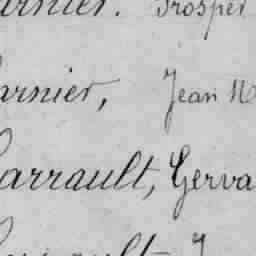 arnier. Prosper
arnier, Jean M
arrault, Gerva